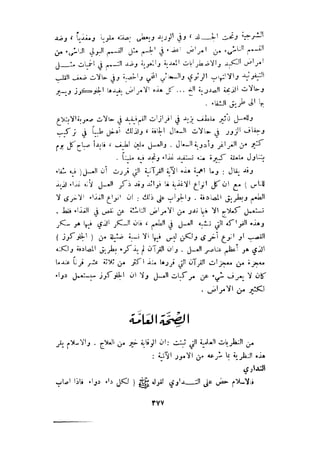 الشرجية وتحت الجـــلد ؛ وفي الوريد ويعطى بصفته مقوياً ومغذياً ، وضد
التسمم الناشىء من امراض اعضاء في الجسم مثل التسمم البولي الناشىء من
امراض الكبد والاضطرابات المعدية والمعوية وضد التسمم في الحميات مثـــل
التيفوئيد والالتهاب الرئوي والسحائي المخي والحصبة وفي حالات ضعف القلب
وحالات الذبحة الصدرية الخ ... كل هذه الامراض يفيدها الجلوكوز ويسير
بها الى طريق الشفاء .
وللعسل تأثير ملطف يزيد في افرازات الفم فيفيد في حالات صعوبة الابتلاع
وجفاف الزور في حالات السعال الجافة ، ولذلك أدخل طبياً في تركيب
كثير من الغراغر وأدوية السعال . والعسل ملين لطيف ، فابدأ صباح كل يوم
بتناول ملعقة كبيرة منه تستفيد غذاء وتجد فيه مليناً .
وقد يقال : وما اهمية هذه الآية القرآنية التي قررت أن العسل ( فيه شفاء
للناس ) مع ان كل انواع الاغذية لها فوائد وقد ذكر العسل لأنه غذاء لذيذ
الطعم وبطريق المصادفة . والجواب على ذلك : ان انواع الغذاء الاخرى لا
تستعمل كعلاج الا فيما ندر من الامراض الناشئة عن نقص في الغذاء فقط .
وهذه الفواكه التي تشبه العسل في الطعم ، فان السكر الذي فيها هو سكر
القصب او انوع أخرى ولكن ليس فيها الا نسبة ضئيلة من ( الجلوكوز )
الذي هو أعظم عناصر العسل . وان القرآن لم يذكره بطريق المصادفة ولكنه
معجزة من معجزات القرآن التي قررها منذ اكثر من ثلاثة عشر قرناً عندما
كان لا يعرف شيء عن مركبات العسل ولا ان الجلوكوز سيستعمل دواء
لكثير من الامراض .
الصِّحَّةُ العَامَّة
من النظريات العلمية التي ثبتت : ان الوقاية خير من العلاج . والاسلام يقر
هذه النظرية بما شرعه من الامور الآتية :
التداوي
فالاسلام حض على التـــداوي لقوله ﷺ ( لكل داء دواء فاذا اصاب
٣٧٧